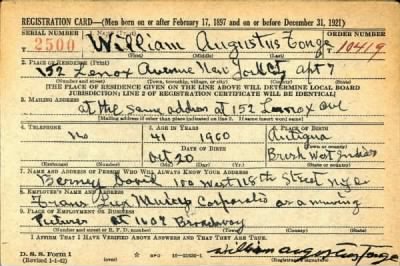 REGISTRATION CARD—(Men born on or after February 17, 1897 and on or before December 31, 1921)
SERIAL NUMBER 1. NAME (Print) ORDER NUMBER
2500 William Augustus Tonge 10419
(First) (Middle) (Last)
2. PLACE OF RESIDENCE (Print)
152 Lenox Avenue New York City Apt 7
(Number and street) (Town, township, village, or city) (County) (State)
[THE PLACE OF RESIDENCE GIVEN ON THE LINE ABOVE WILL DETERMINE LOCAL BOARD
JURISDICTION; LINE 2 OF REGISTRATION CERTIFICATE WILL BE IDENTICAL]
3. MAILING ADDRESS
at the same address at 152 Lenox Ave
[Mailing address if other than place indicated on line 2. If same insert word same]
4. TELEPHONE 5. AGE IN YEARS 6. PLACE OF BIRTH
no 41 1900 Antigua
DATE OF BIRTH (Town or county)
Oct 20 British West Indies
(Exchange) (Number) (Mo.) (Day) (Yr.) (State or country)
7. NAME AND ADDRESS OF PERSON WHO WILL ALWAYS KNOW YOUR ADDRESS
100 West 115th Street NYC
8. EMPLOYER'S NAME AND ADDRESS
Trans Lux Corporation
9. PLACE OF EMPLOYMENT OR BUSINESS
Pictures at 1609 Broadway
(Number and street or R. F. D. number) (Town) (County) (State)
I AFFIRM THAT I HAVE VERIFIED ABOVE ANSWERS AND THAT THEY ARE TRUE.
D. S. S. Form 1
(Revised 1-1-42) GPO William Augustus Tonge